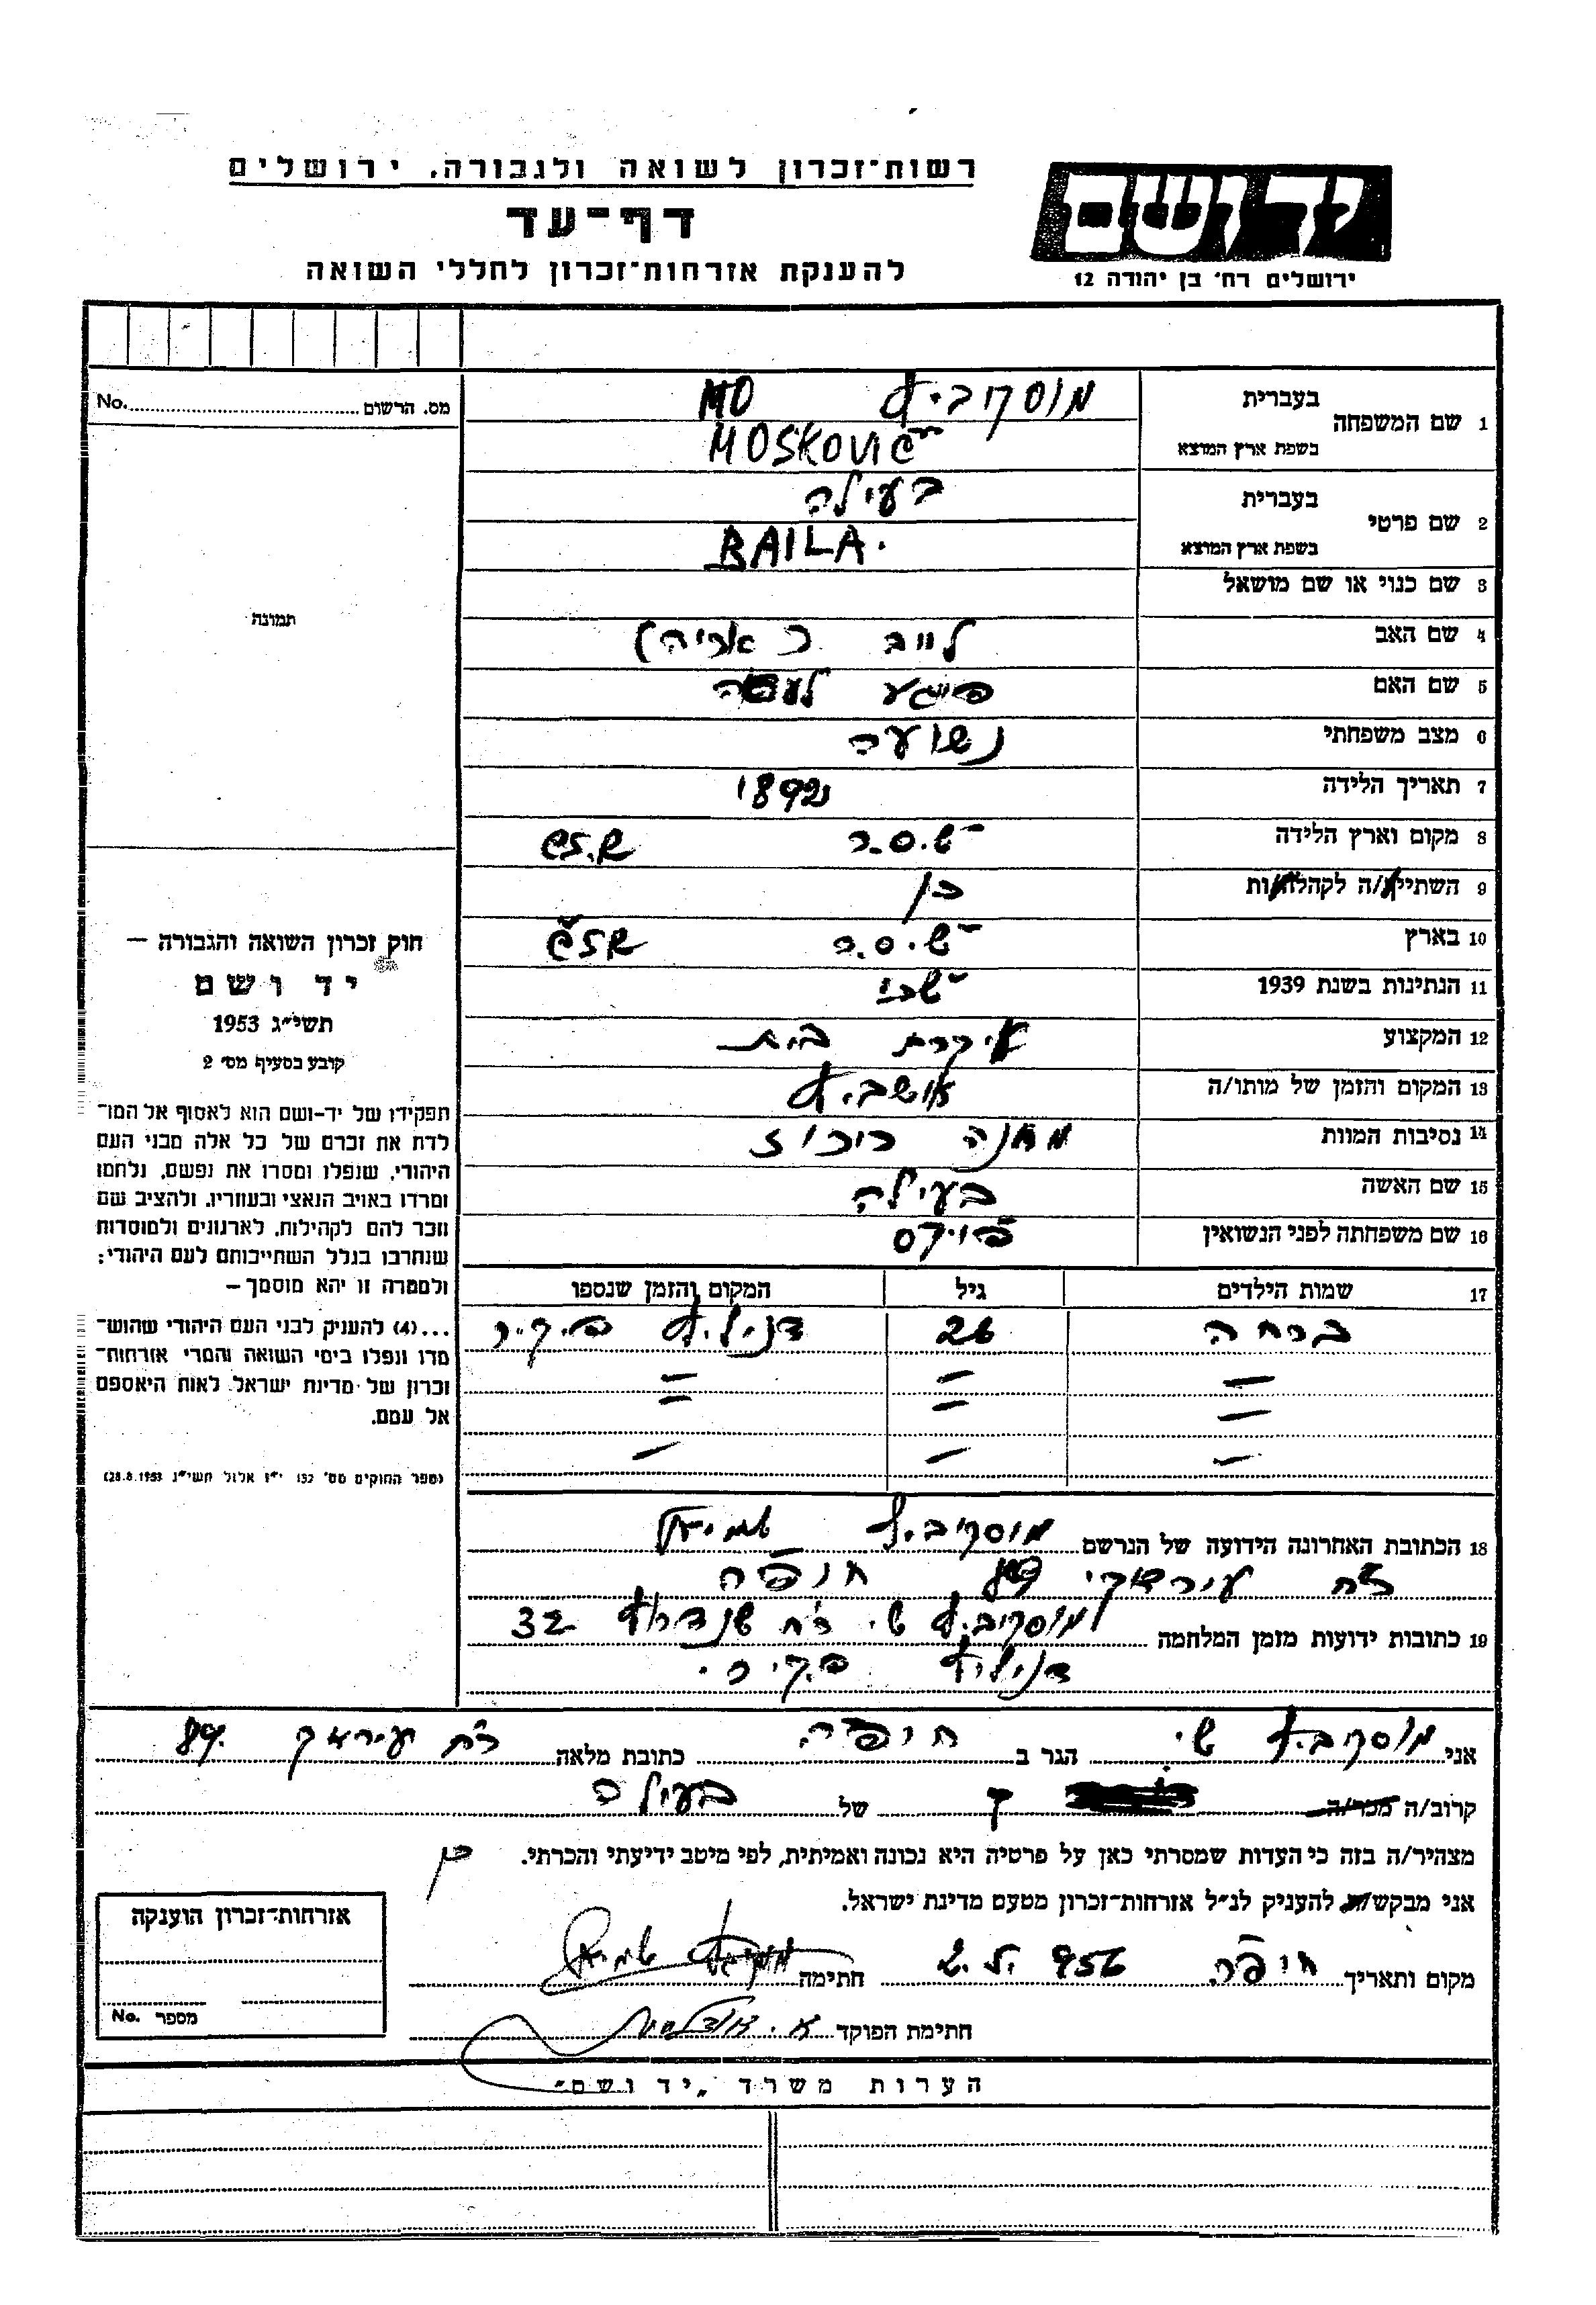 רשות־זכרון לשואה ולגבורה, ירושלים
דף־עד
להענקת אזרחות־זכרון לחללי השואה
יד ושם
ירושלים רח' בן יהודה 12
מס. הרשום No.
1 שם המשפחה בעברית מוסקוביץ MO
בשפת ארץ המוצא MOSKOVIČ
2 שם פרטי בעברית בעילה
בשפת ארץ המוצא BAILA.
3 שם כנוי או שם מושאל
4 שם האב לייב (אריה)
5 שם האם פייגע
6 מצב משפחתי נשועה
7 תאריך הלידה 1892
8 מקום וארץ הלידה צ'.ס.ר
9 השתייך/ה לקהלה/ות כן
10 בארץ צ'.ס.ר
11 הנתינות בשנת 1939 צ'כי
12 המקצוע עיקרת בית
13 המקום והזמן של מותו/ה אושביץ
14 נסיבות המוות מחנה ריכוז
15 שם האשה בעילה
16 שם משפחתה לפני הנשואין
17 שמות הילדים גיל המקום והזמן שנספו
ברחה 26 דניליץ
תמונה
חוק זכרון השואה והגבורה –
יד ושם
תשי״ג 1953
קובע בסעיף מס' 2
תפקידו של יד-ושם הוא לאסוף אל המו־
לדת את זכרם של כל אלה מבני העם
היהודי, שנפלו ומסרו את נפשם, נלחמו
ומרדו באויב הנאצי ובעוזריו, ולהציב שם
וזכר להם לקהילות, לארגונים ולמוסדות
שנחרבו בגלל השתייכותם לעם היהודי;
ולמטרה זו יהא מוסמך –
...(4) להעניק לבני העם היהודי שהוש־
מדו ונפלו בימי השואה והמרי אזרחות־
זכרון של מדינת ישראל לאות היאספם
אל עמם.
(ספר החוקים מס' 132 י״ז אלול תשי״ג 28.8.1953)
18 הכתובת האחרונה הידועה של הנרשם מוסקוביץ
חופה
19 כתובות ידועות מזמן המלחמה מוסקוביץ ש. רח 32
דניליץ
אני מוסקוביץ ש. הגר ב חופה כתובת מלאה רח עיראק 89.
קרוב/ה מכר/ה של בעילה
מצהיר/ה בזה כי העדות שמסרתי כאן על פרטיה היא נכונה ואמיתית, לפי מיטב ידיעתי והכרתי. כן
אני מבקש/ת להעניק לנ״ל אזרחות־זכרון מטעם מדינת ישראל.
מקום ותאריך חופה 956 חתימה
חתימת הפוקד
אזרחות־זכרון הוענקה
מספר No.
הערות משרד „יד ושם״